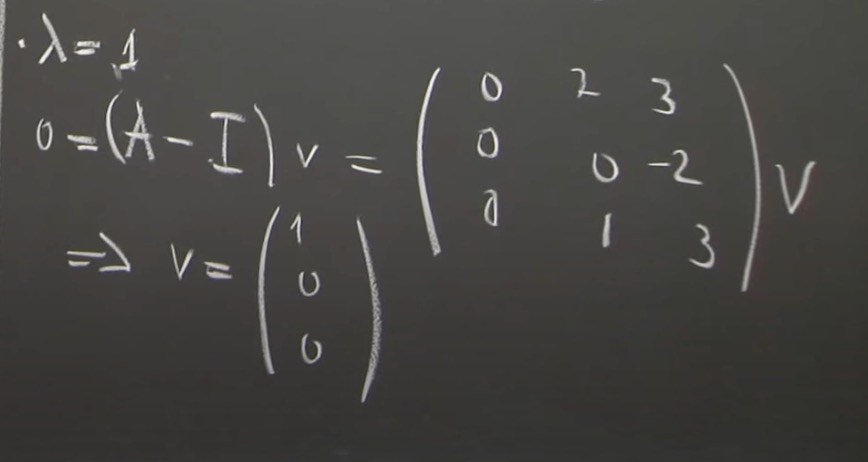 · λ = 1
0 = (A - I) v = ( 0 2 3
0 0 -2
0 1 3 ) v
=> v = ( 1
0
0 )